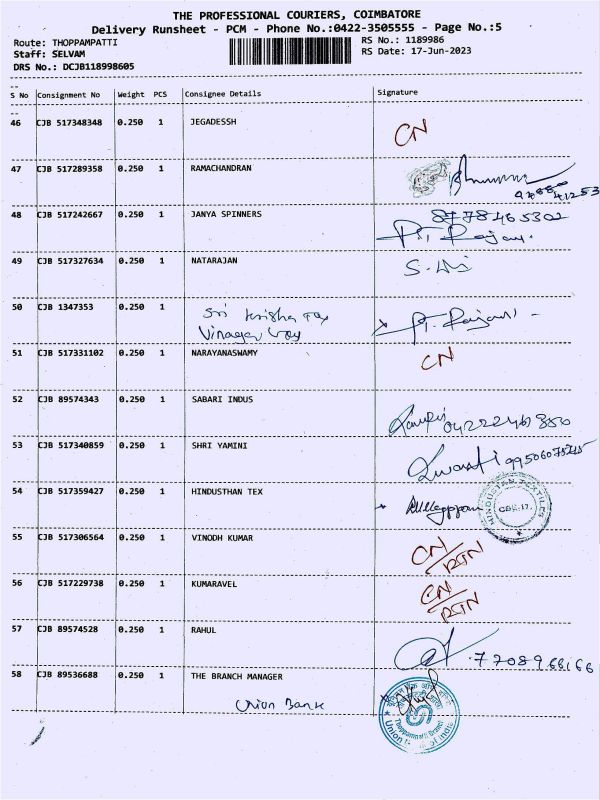 THE PROFESSIONAL COURIERS, COIMBATORE
Delivery Runsheet - PCM - Phone No.:0422-3505555 - Page No.:5
Route: THOPPAMPATTI RS No.: 1189986
Staff: SELVAM RS Date: 17-Jun-2023
DRS No.: DCJB118998605
S No Consignment No Weight PCS Consignee Details Signature
46 CJB 517348348 0.250 1 JEGADESSH CN
47 CJB 517289358 0.250 1 RAMACHANDRAN
48 CJB 517242667 0.250 1 JANYA SPINNERS 8778465302
49 CJB 517327634 0.250 1 NATARAJAN
50 CJB 1347353 0.250 1 Sri Krisha Tax
Vinagar
51 CJB 517331102 0.250 1 NARAYANASWAMY CN
52 CJB 89574343 0.250 1 SABARI INDUS
53 CJB 517340859 0.250 1 SHRI YAMINI
54 CJB 517359427 0.250 1 HINDUSTHAN TEX HINDUSTAN TEXTILES
55 CJB 517306564 0.250 1 VINODH KUMAR CN/RTN
56 CJB 517229738 0.250 1 KUMARAVEL CN/RTN
57 CJB 89574528 0.250 1 RAHUL
58 CJB 89536688 0.250 1 THE BRANCH MANAGER
Union Bank
Thoppampatti Branch
Union Bank of India